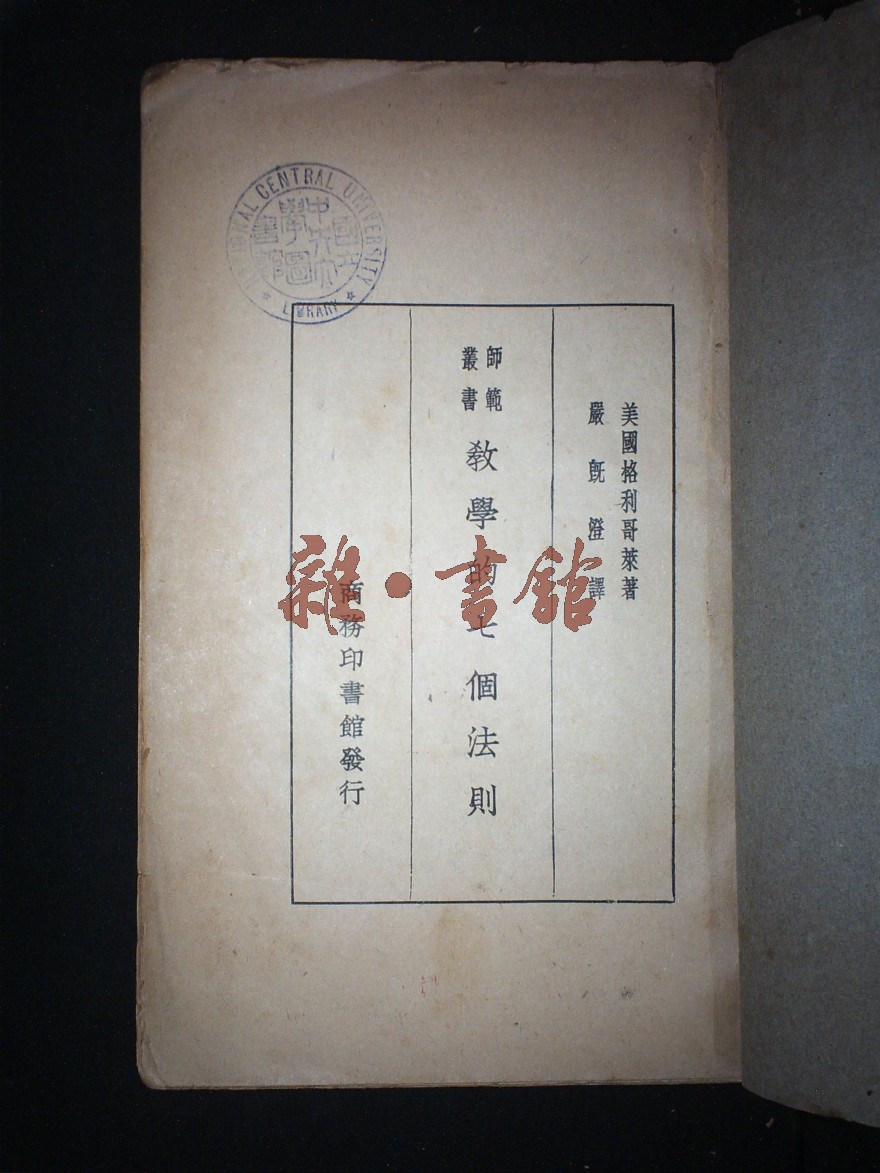 美國格利哥萊著
嚴旣澄譯
師範叢書
敎學的七個法則
商務印書館發行
NATIONAL CENTRAL UNIVERSITY
LIBRARY
國立中央大學圖書館
雜·書館